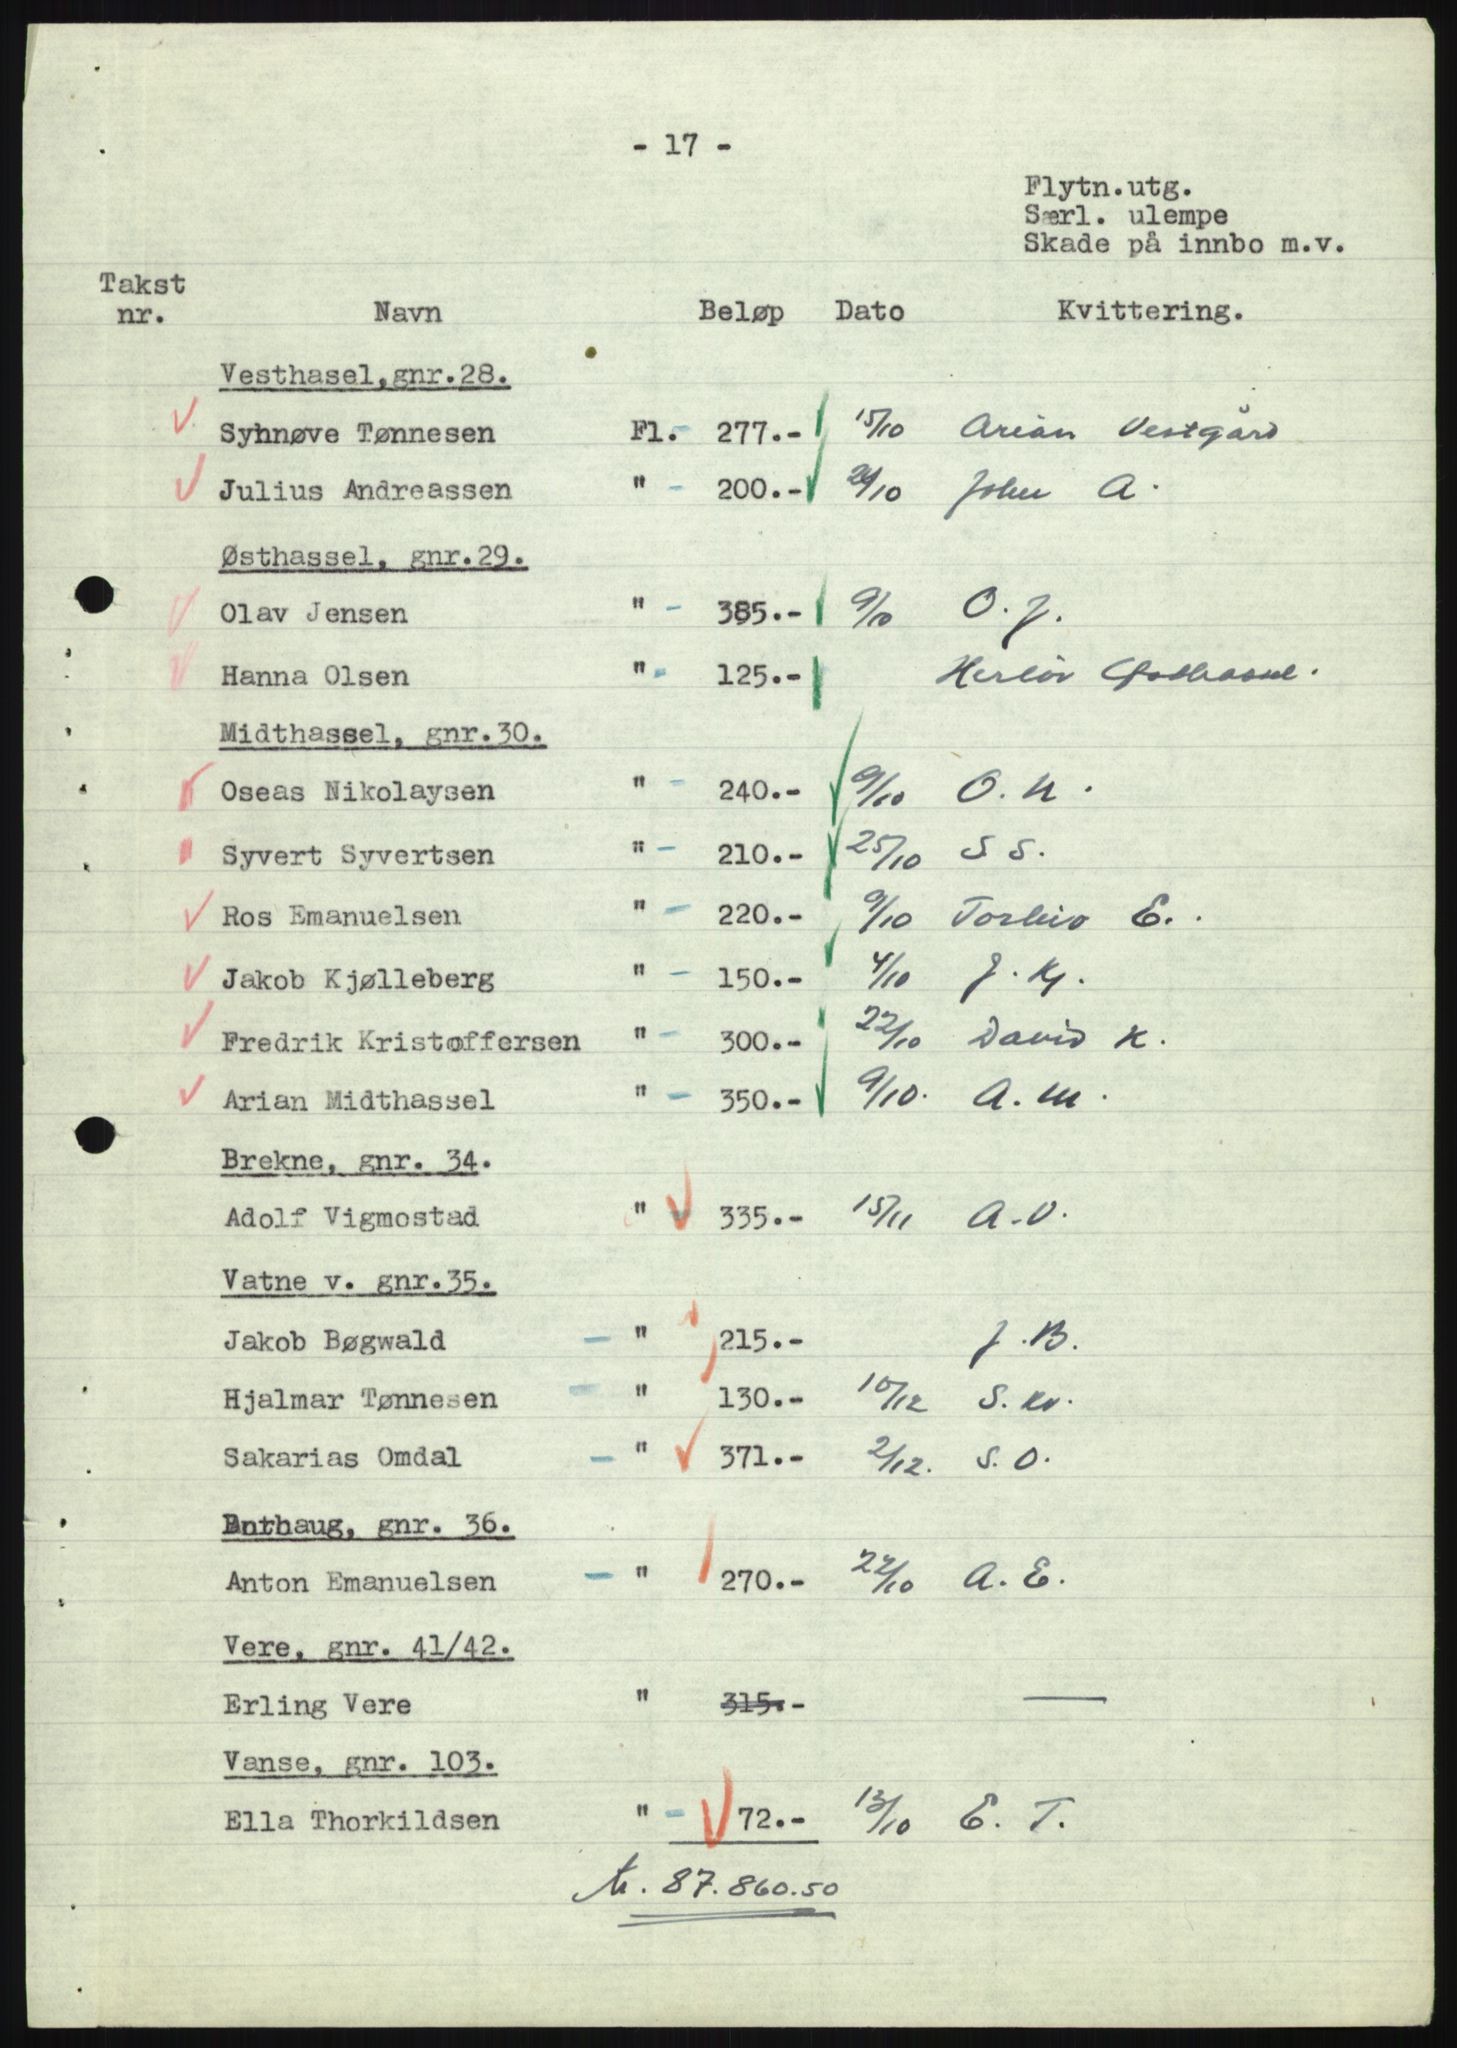 - 17 -
Flytn.utg.
Særl. ulempe
Skade på innbo m.v.
Takst nr. Navn Beløp Dato Kvittering.
Vesthasel, gnr.28.
Synnøve Tønnesen Fl. - 277.- 15/10 Arian Vestgård
Julius Andreassen " - 200.- /10 John A.
Østhassel, gnr.29.
Olav Jensen " - 385.- 9/10 O. J.
Hanna Olsen " - 125.-
Midthassel, gnr.30.
Oseas Nikolaysen " - 240.- 9/10 O. N.
Syvert Syvertsen " - 210.- 25/10 S S.
Ros Emanuelsen " - 220.- 9/10 E.
Jakob Kjølleberg " - 150.- 4/10 J. Kj.
Fredrik Kristoffersen " - 300.- 22/10 David K.
Arian Midthassel " - 350.- 9/10. A. M.
Brekne, gnr. 34.
Adolf Vigmostad " - 335.- 15/11 A. V.
Vatne v. gnr.35.
Jakob Bøgwald - " 215.- J. B.
Hjalmar Tønnesen - " 130.- 10/12 S. Kv.
Sakarias Omdal - " 371.- 2/12. S. O.
gnr. 36.
Anton Emanuelsen - " 270.- 22/10 A. E.
Vere, gnr. 41/42.
Erling Vere " 315.- —
Vanse, gnr. 103.
Ella Thorkildsen " - 72.- 13/10 E. T.
kr. 87.860.50